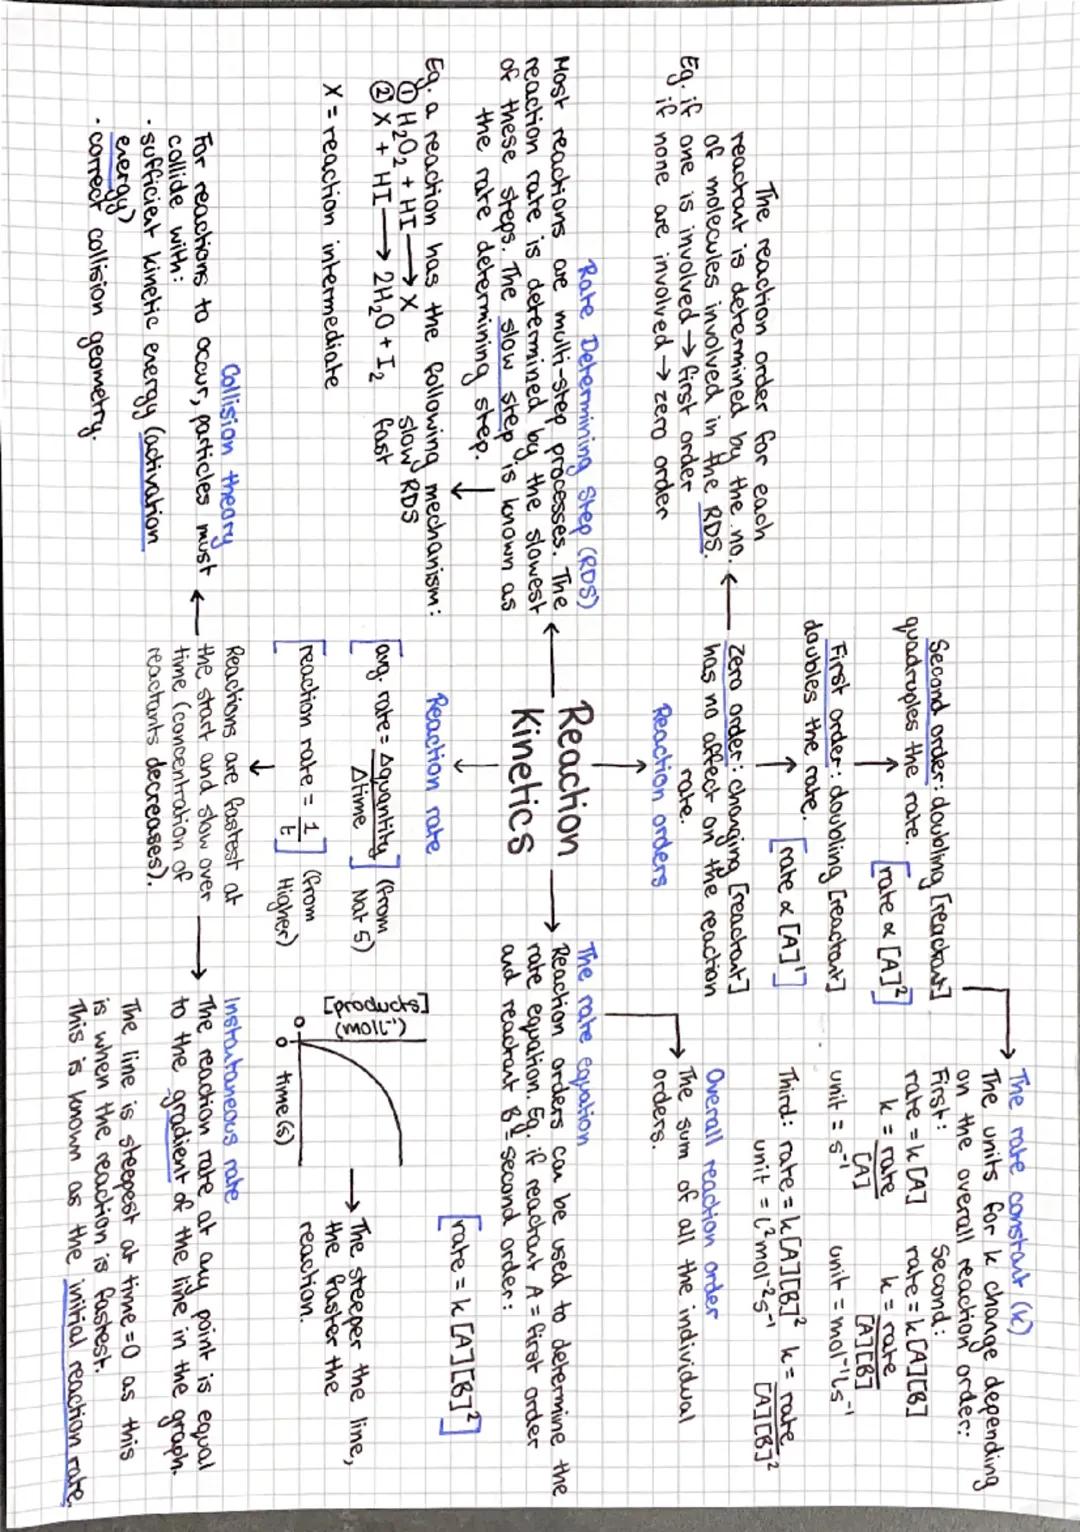 Reaction
Kinetics
Reaction orders
Zero order: changing [reactant]
has no affect on the reaction
rate.
First order: doubling [reactant]
doubles the rate.
[rate ∝ [A]¹]
Second order: doubling [reactant]
quadruples the rate.
[rate ∝ [A]²]
The rate constant (k)
The units for k change depending
on the overall reaction order:
First:
rate = k[A]
k = rate
[A]
unit = s⁻¹
Second:
rate = k[A][B]
k = rate
[A][B]
unit = mol⁻¹ l s⁻¹
Third: rate = k[A][B]² k = rate
[A][B]²
unit = l²mol⁻²s⁻¹
The reaction order for each
reactant is determined by the no.
of molecules involved in the RDS.
Eg. if one is involved → first order
if none are involved → zero order
Rate Determining Step (RDS)
Most reactions are multi-step processes. The
reaction rate is determined by the slowest
of these steps. The slow step is known as
the rate determining step.
Eg. a reaction has the following mechanism:
① H₂O₂ + HI → X slow RDS
② X + HI → 2H₂O + I₂ fast
X = reaction intermediate
The rate equation
Reaction orders can be used to determine the
rate equation. Eg. if reactant A = first order
and reactant B = second order:
[rate = k[A][B]²]
Overall reaction order
The sum of all the individual
orders.
Reaction rate
[avg. rate = Δquantity] (from
Δtime Nat 5)
[reaction rate = 1] (from
t Higher)
Reactions are fastest at
the start and slow over
time (concentration of
reactants decreases).
Collision theory
For reactions to occur, particles must
collide with:
· sufficient kinetic energy (activation
energy)
· correct collision geometry.
[products]
(moll⁻¹)
0
0 time(s)
The steeper the line,
the faster the
reaction.
Instantaneous rate
The reaction rate at any point is equal
to the gradient of the line in the graph.
The line is steepest at time = 0 as this
is when the reaction is fastest.
This is known as the initial reaction rate.